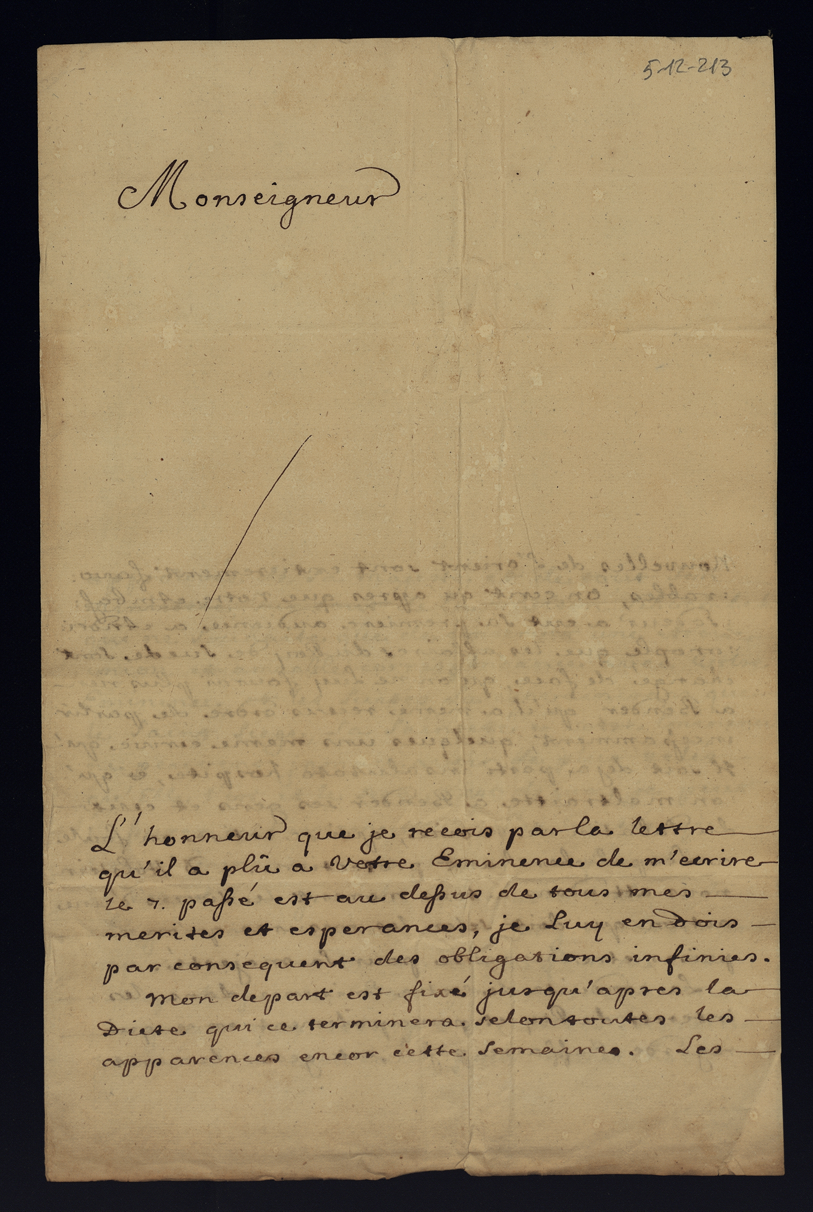 5-12-213
Monseigneur
L'honneur que je recois par la lettre
qu'il a plû a Votre Eminence de m'ecrire
le 7. passé est au dessus de tous mes
merites et esperances, je Luy en dois
par consequent des obligations infinies.
Mon depart est fixé jusqu'apres la
Diete qui ce terminera selon toutes les
apparences encor cette semaine. Les